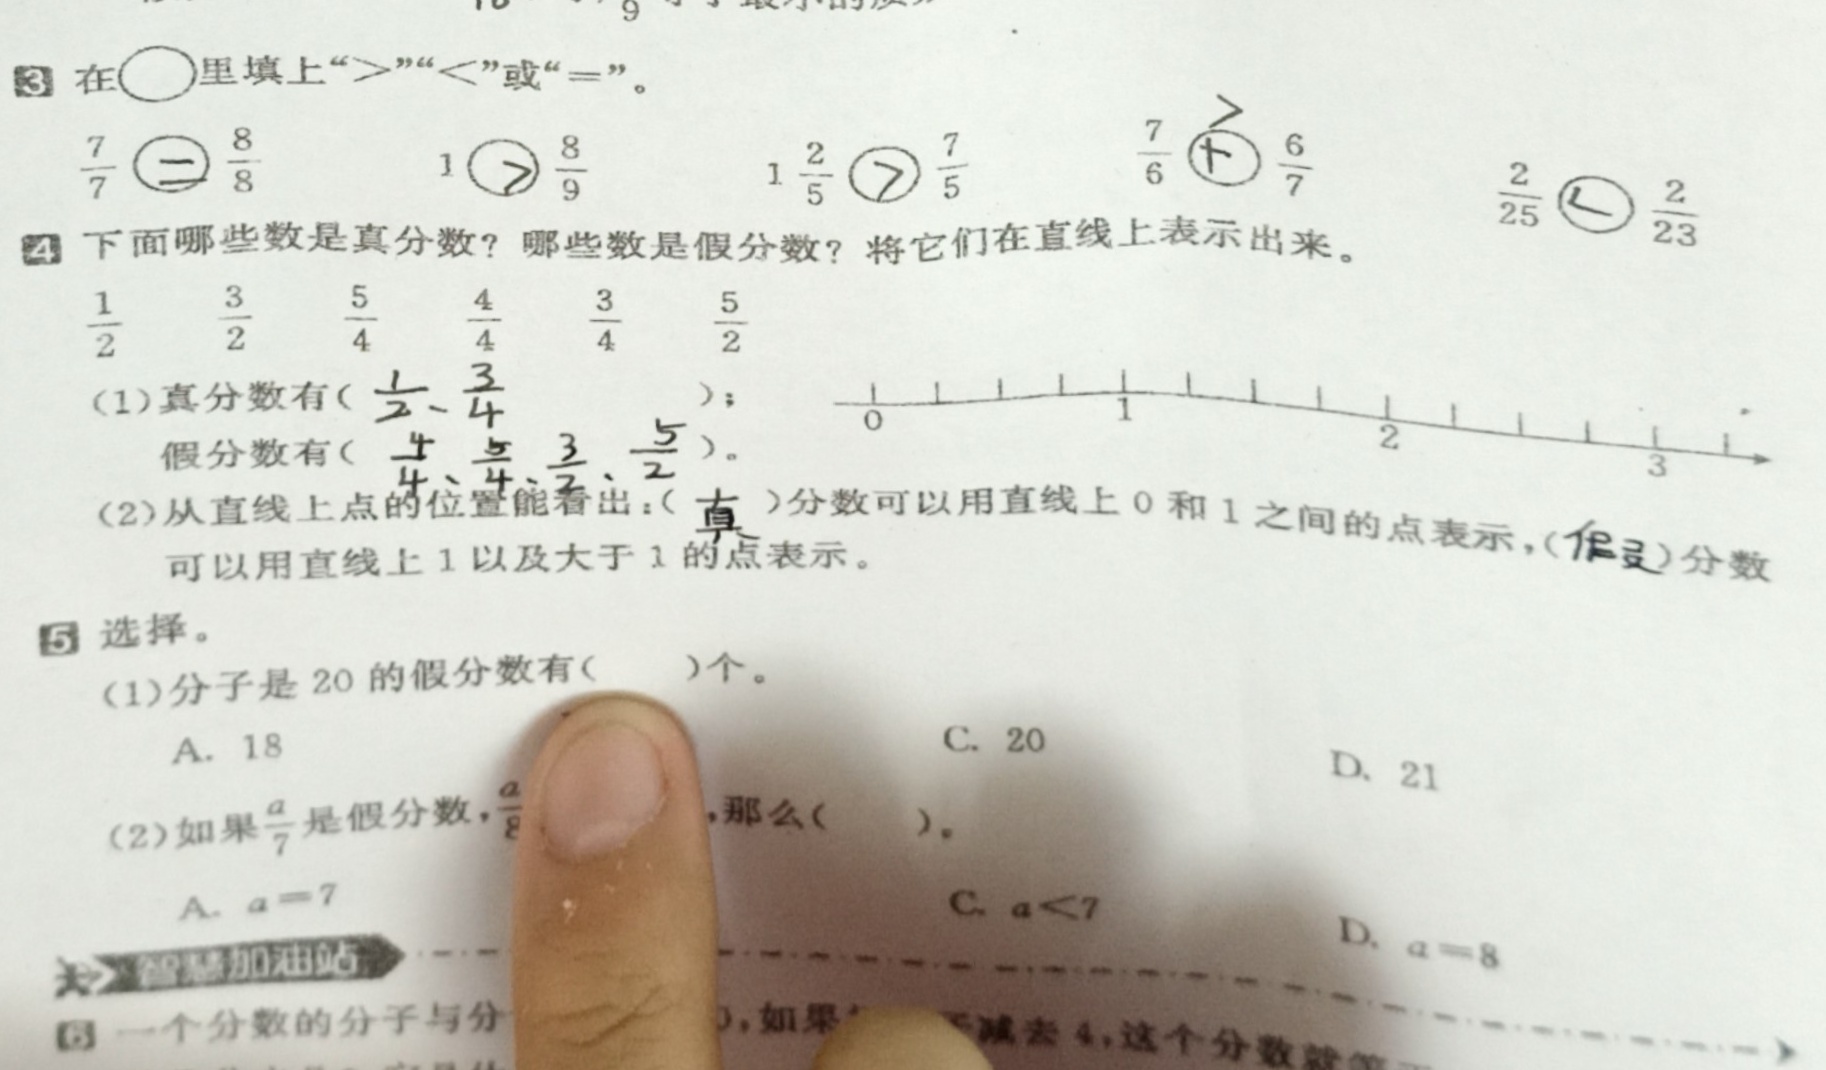 3 在○里填上“>”“<”或“=”。
7/7 = 8/8 1 > 8/9 1 2/5 > 7/5 7/6 > 6/7 2/25 < 2/23
4 下面哪些数是真分数？哪些数是假分数？将它们在直线上表示出来。
1/2 3/2 5/4 4/4 3/4 5/2
(1)真分数有( 1/2、3/4 )；
假分数有( 4/4、5/4、3/2、5/2 )。
0 1 2 3
(2)从直线上点的位置能看出：( 真 )分数可以用直线上 0 和 1 之间的点表示，(假)分数
可以用直线上 1 以及大于 1 的点表示。
5 选择。
(1)分子是 20 的假分数有( )个。
A. 18 C. 20 D. 21
(2)如果 a/7 是假分数，a/8 ，那么( )。
A. a=7 C. a<7 D. a=8
智慧加油站
6 一个分数的分子与分 ，如果 减去 4，这个分数就等